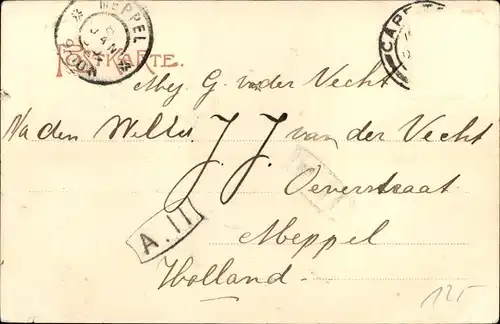 MEPPEL
JAN
CAPE T
POSTKARTE.
Mej. G. v. der Vecht
Na den Welle. J. J. van der Vecht
Oeverstraat
A.11
Meppel
Holland.
125